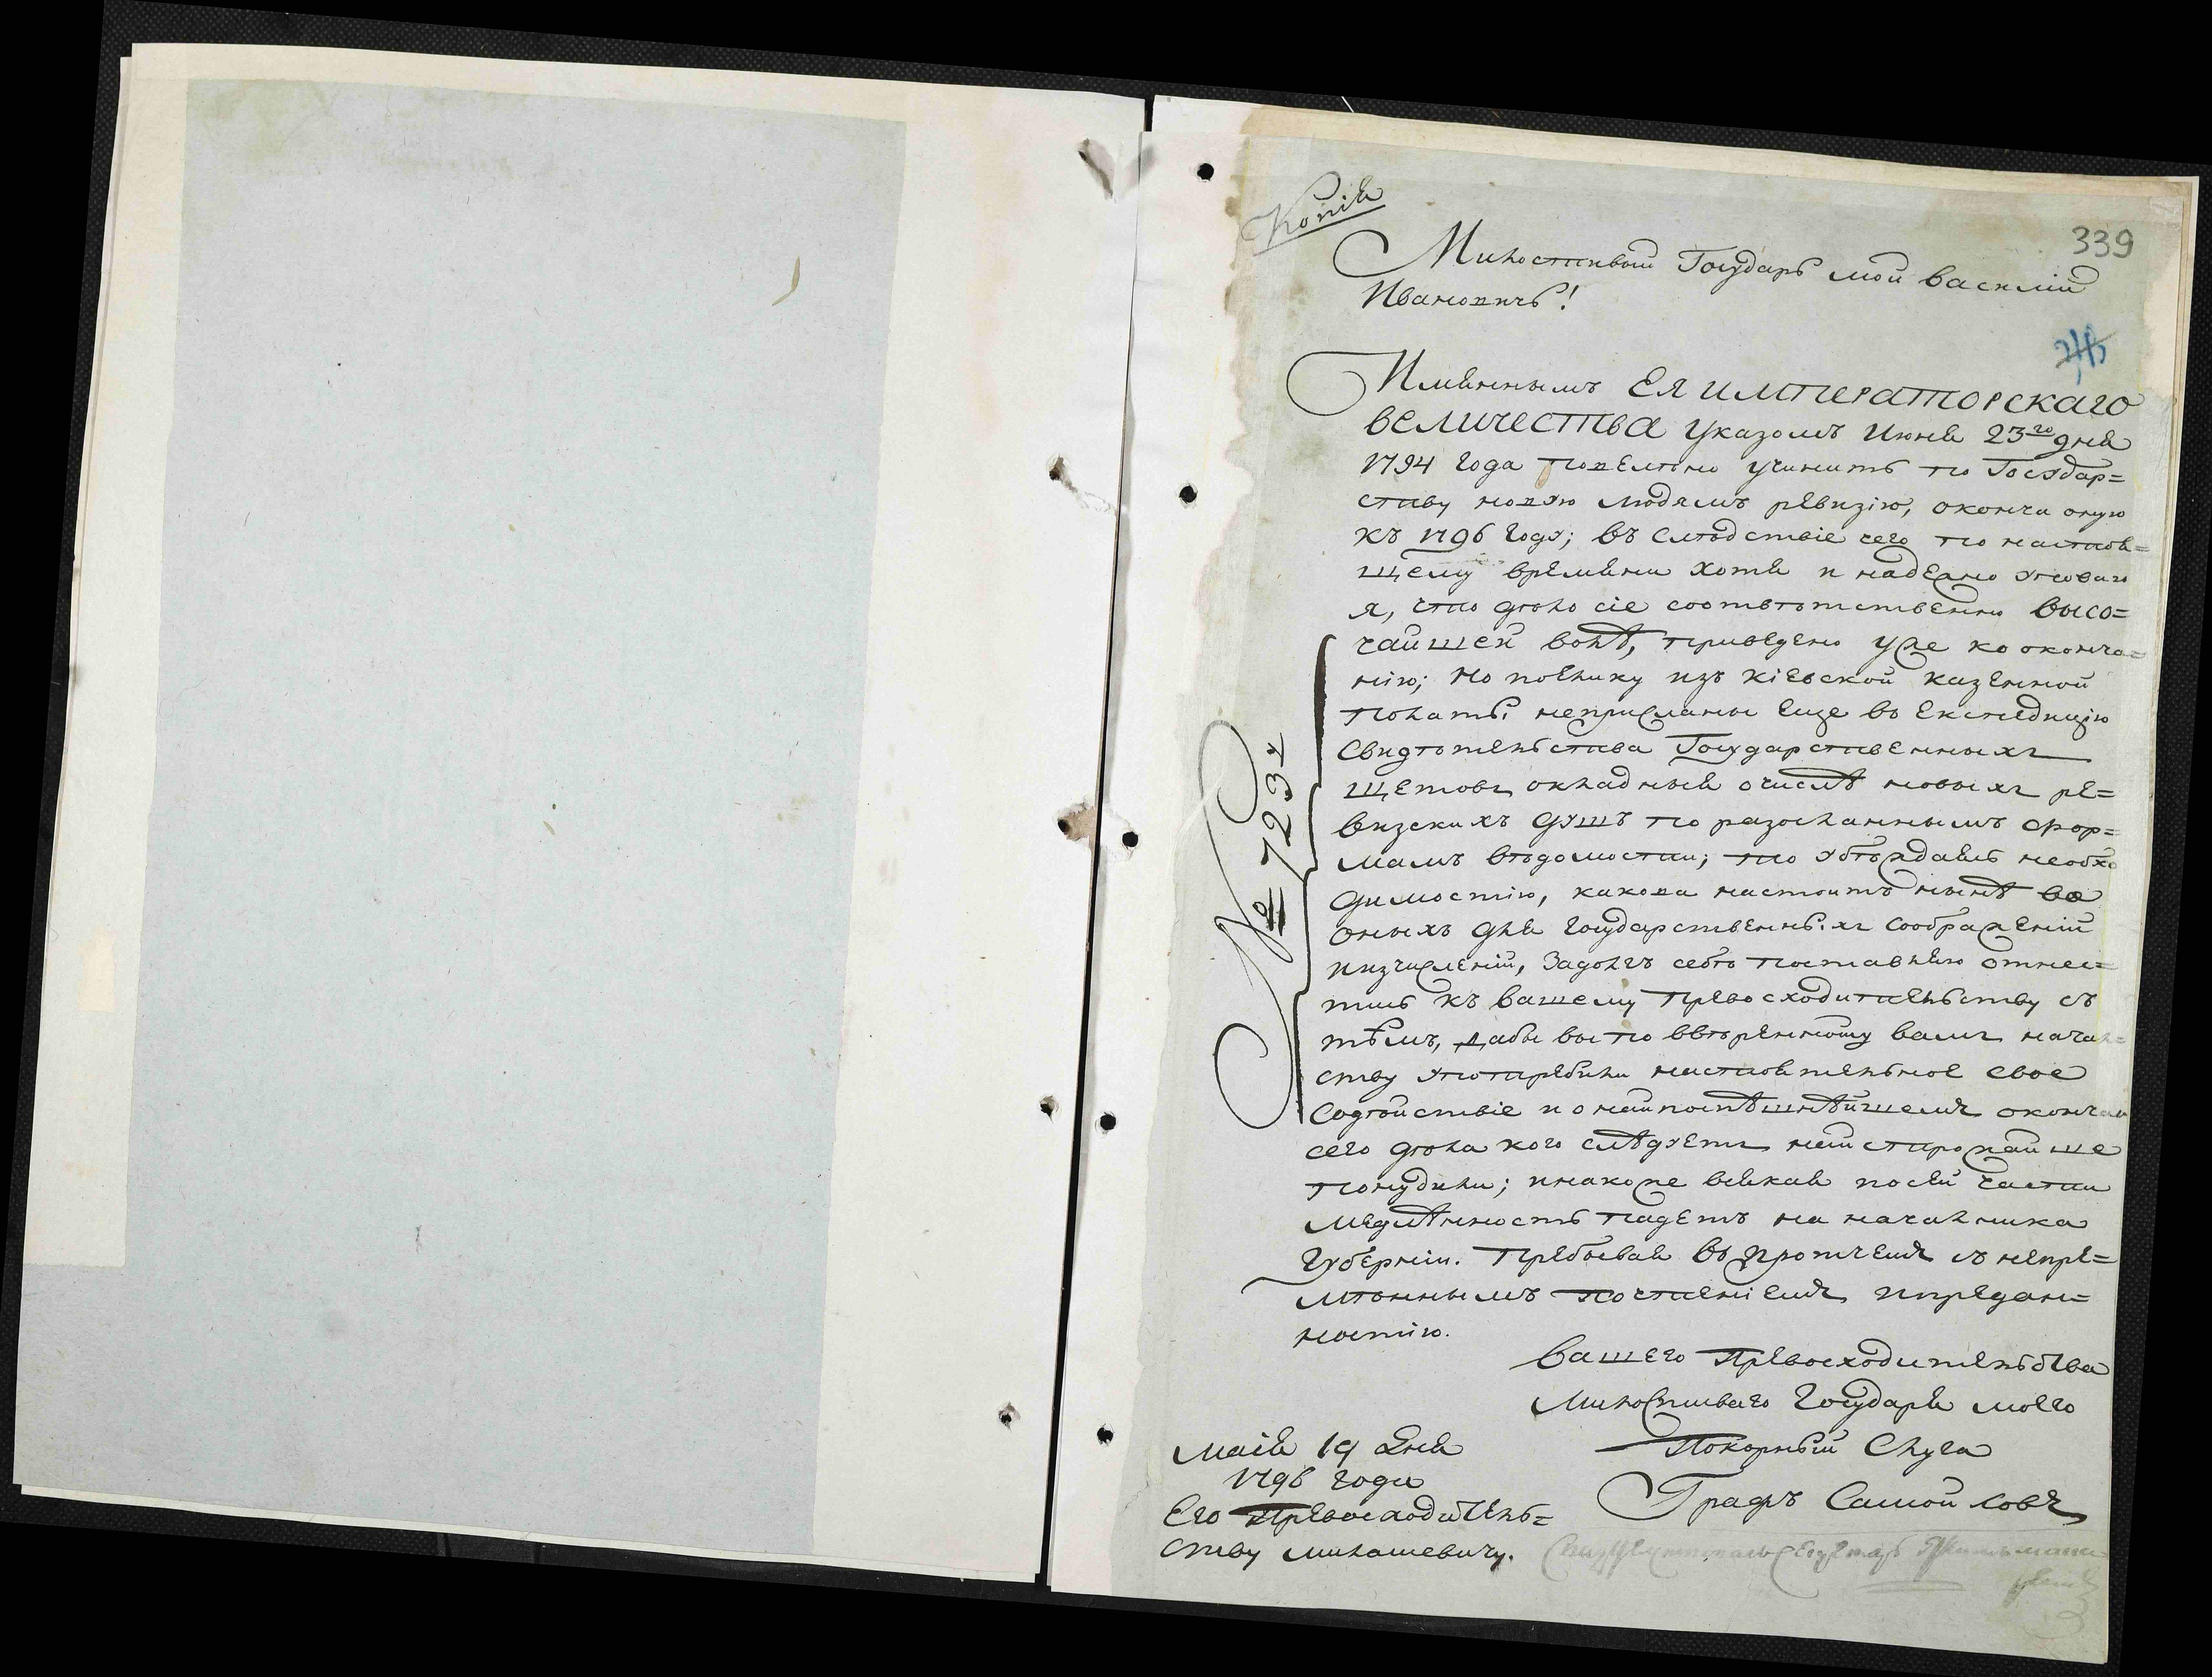 Копія
339
Милостивый Государь мой василій
Ивановичь!
Имяннымъ ЕЯ ИМПЕРАТОРСКАГО
ВЕЛИЧЕСТВА указомъ Июня 23го дня
1794 года повелѣно учинить по Государ=
ству новую людямъ ревизію, оконча оную
къ 1796 году; въ слѣдствіе чего по настоя=
щему времяни хотя и надежно уповаю
я, что дѣло сіе соотвѣтственно высо=
чайшей волѣ, приведено уже ко оконча=
нію; но поелику изъ кіевской казенной
полаты неприсланы еще въ Експедицію
свидѣтельства Государственныхъ
щетовъ окладныя очислѣ новыхъ ре=
визскихъ душъ по разосланнымъ фор=
мамъ вѣдомости; то убѣждаясь необхо
димостію, какова настоитъ нынѣ во
оныхъ для государственныхъ соображеній
иизчисленій, Задолгъ себѣ поставляю отнес=
тись къ вашему превосходительству съ
тѣмъ, дабы вы по ввѣренному вамъ началь=
ству употребили настоятельное свое
содѣйствіе и о наипоспѣшнѣйшемъ окончан
сего дѣла кого слѣдуетъ наистрожайше
понудили; инакоже всякая посей части
медлѣнность падетъ на началника
губерніи. Пребывая въ протчемъ съ непре=
мѣннымъ почтеніемъ ипредан=
ностію.
вашего Превосходительства
милостиваго Государя моего
Покорный Слуга
Графъ Самойловъ
маія 19 дня
1796 года
Его Превосходитель=
ству милашевичу.
№ 7234